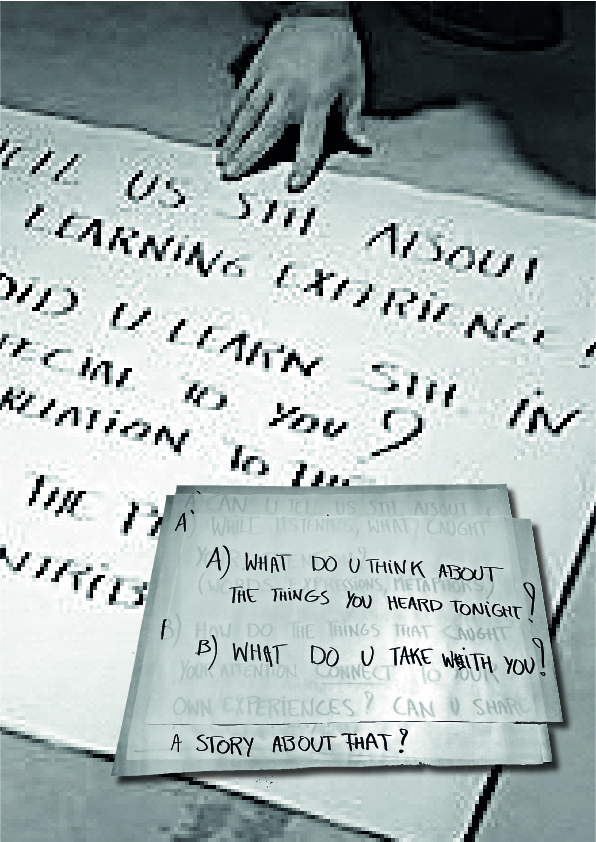 US STH ABOUT
LEARNING EXPERIENCE
DID U LEARN STH IN
TO YOU?
RELATION TO THE
THE
A) CAN U TELL US STH ABOUT
A) WHILE LISTENING, WHAT CAUGHT
A) WHAT DO U THINK ABOUT
(WORDS, EXPRESSIONS, METAPHORS)
THE THINGS YOU HEARD TONIGHT?
B) HOW DO THE THINGS THAT CAUGHT
B) WHAT DO U TAKE WITH YOU?
YOUR ATTENTION CONNECT TO YOUR
OWN EXPERIENCES? CAN U SHARE
A STORY ABOUT THAT?